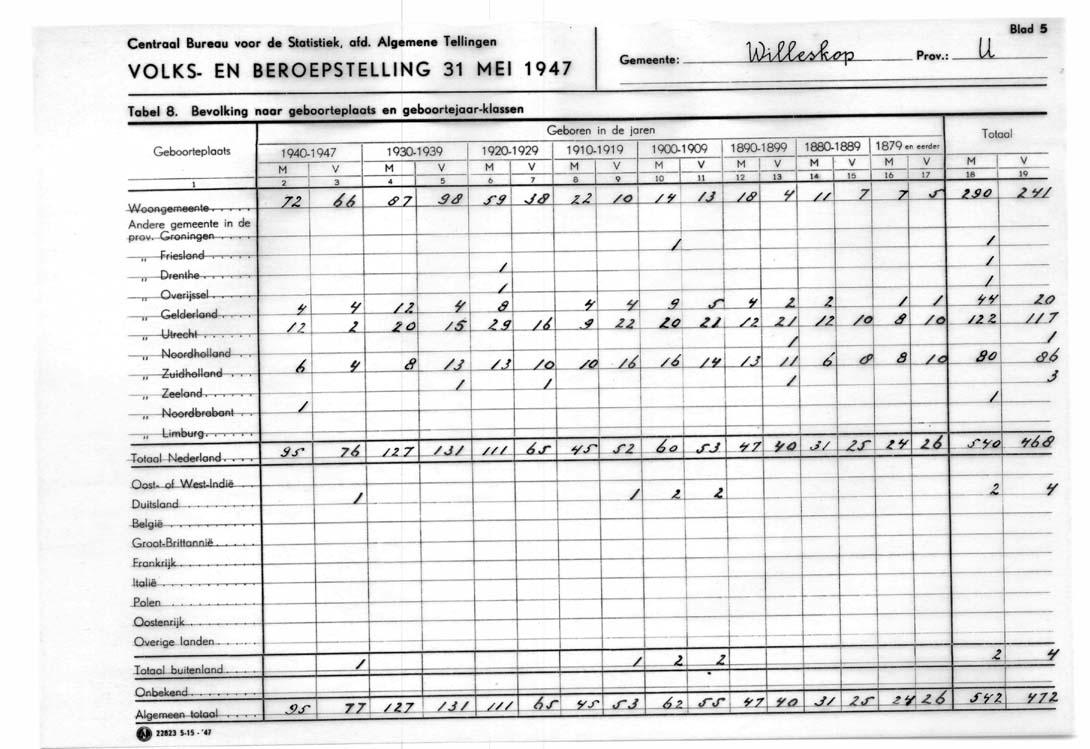 Blad 5
Centraal Bureau voor de Statistiek, afd. Algemene Tellingen
VOLKS- EN BEROEPSTELLING 31 MEI 1947
Gemeente: Willeskop Prov.: U
Tabel 8. Bevolking naar geboorteplaats en geboortejaar-klassen
Geboorteplaats Geboren in de jaren Totaal
1940-1947 1930-1939 1920-1929 1910-1919 1900-1909 1890-1899 1880-1889 1879 en eerder
M V M V M V M V M V M V M V M V M V
1 2 3 4 5 6 7 8 9 10 11 12 13 14 15 16 17 18 19
Woongemeente..... 72 66 87 98 59 38 22 10 14 13 18 4 11 7 7 5 290 241
Andere gemeente in de
prov. Groningen....
„ Friesland...... 1 1
„ Drenthe....... 1 1
„ Overijssel...... 1 1
„ Gelderland.... 4 4 12 4 8 4 4 9 5 4 2 2 1 1 44 20
„ Utrecht....... 12 2 20 15 29 16 9 22 20 21 12 21 12 10 8 10 122 117
„ Noordholland.. 1 1
„ Zuidholland... 6 4 8 13 13 10 10 16 16 14 13 11 6 8 8 10 80 86
„ Zeeland...... 1 1 1 3
„ Noordbrabant.. 1 1
„ Limburg......
Totaal Nederland.... 95 76 127 131 111 65 45 52 60 53 47 40 31 25 24 26 540 468
Oost- of West-Indië..
Duitsland........ 1 1 2 2 2 4
België..........
Groot-Brittannië....
Frankrijk.........
Italië...........
Polen...........
Oostenrijk........
Overige landen.....
Totaal buitenland.... 1 1 2 2 2 4
Onbekend........
Algemeen totaal..... 95 77 127 131 111 65 45 53 62 55 47 40 31 25 24 26 542 472
22823 5-15-'47